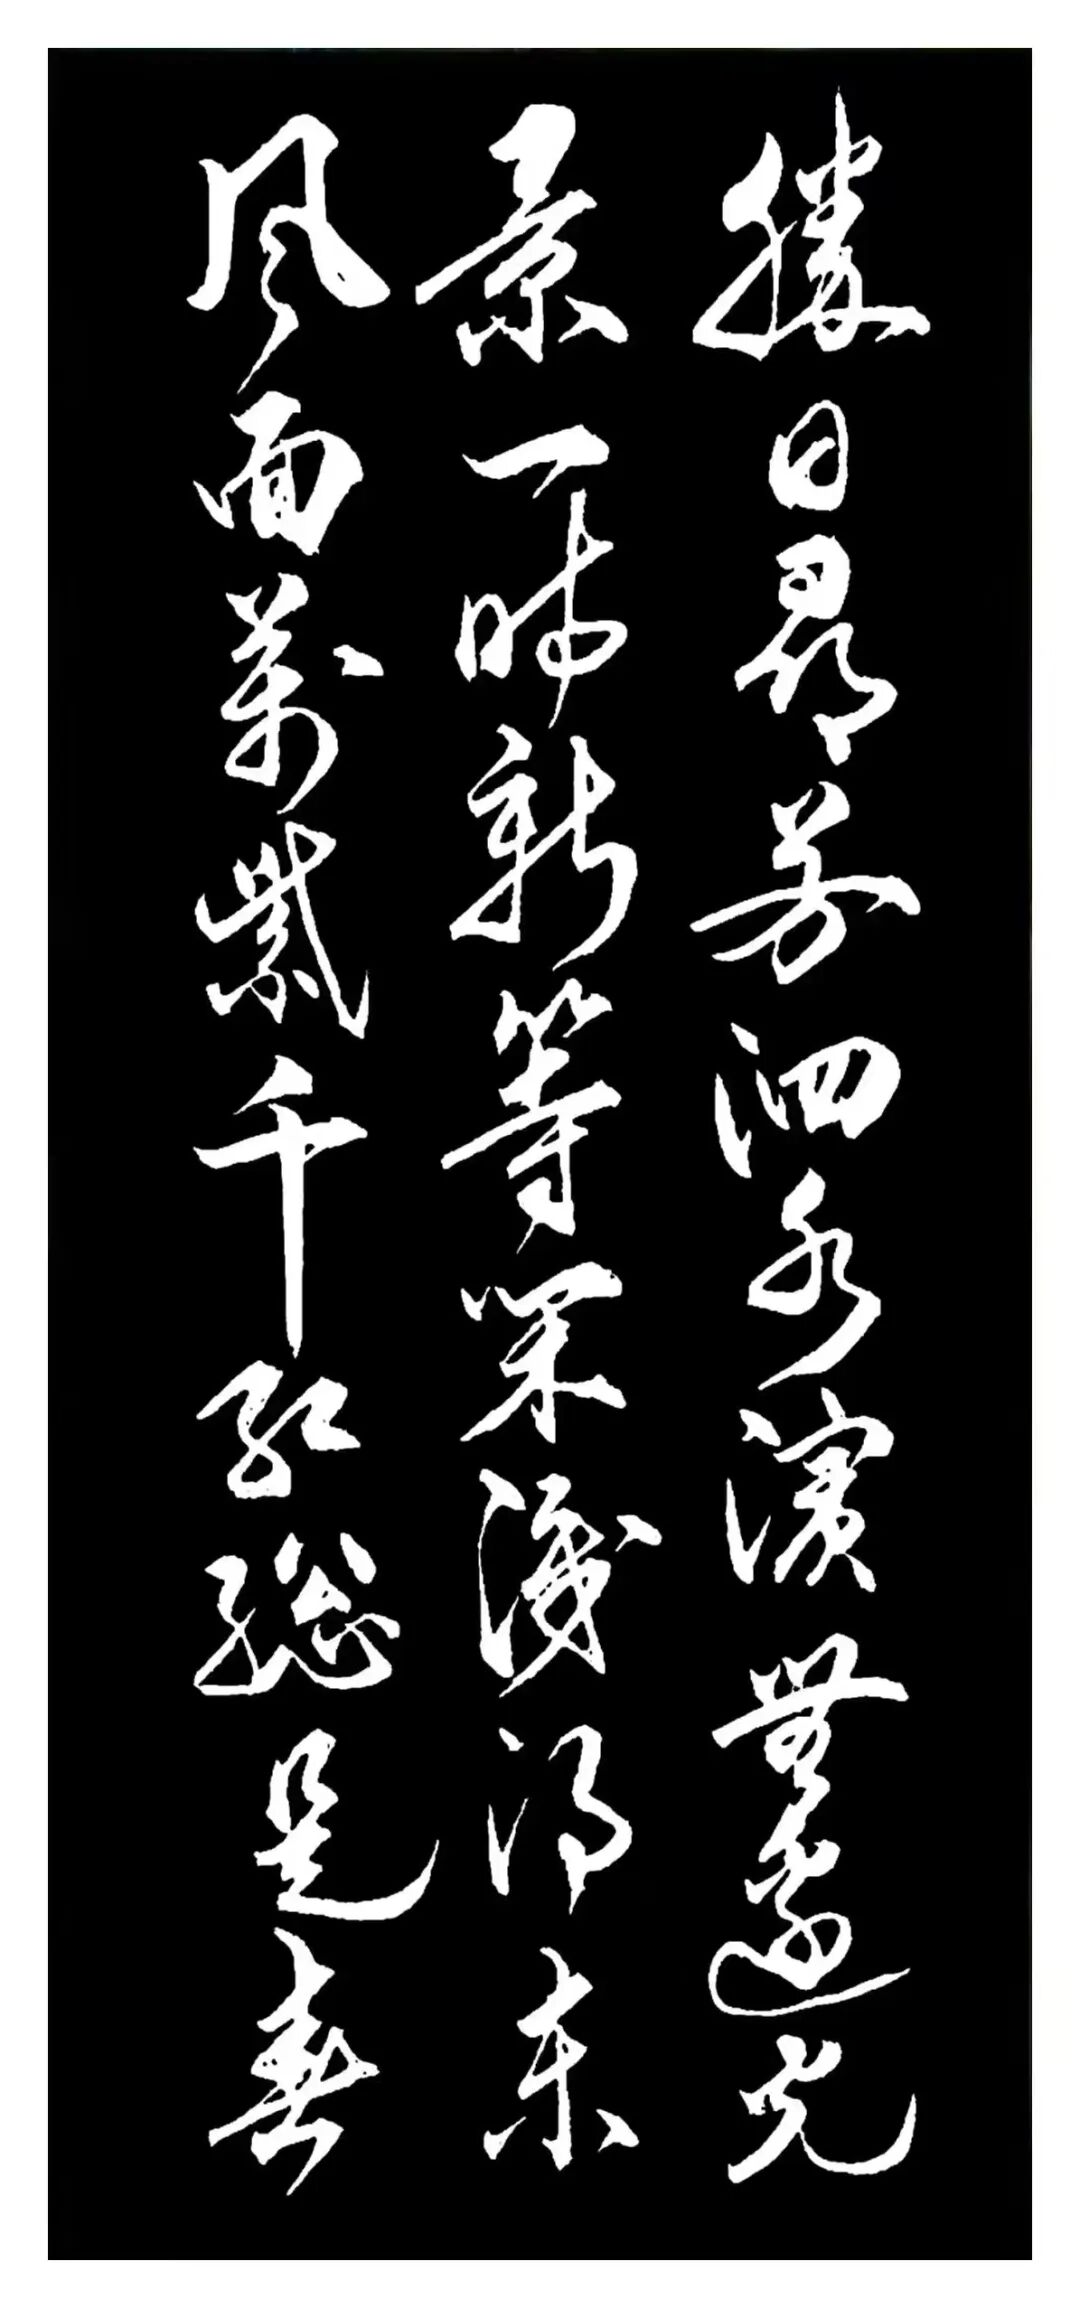 勝日尋芳泗水濱無邊光
景一時新等閑識得東
風面萬紫千紅總是春